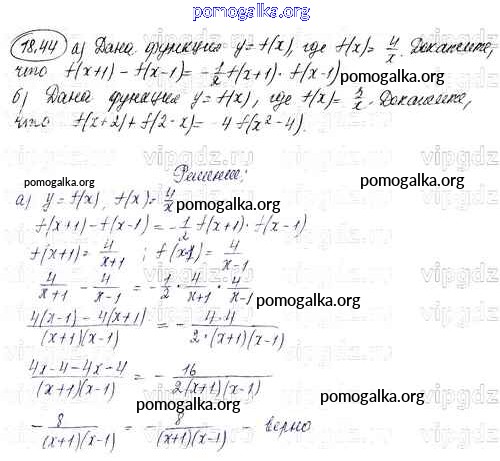 pomogalka.org
18.44 а) Дана функция y = f(x), где f(x) = 4/x. Докажите,
что f(x+1) - f(x-1) = -1/2 f(x+1) · f(x-1)
pomogalka.org
б) Дана функция y = f(x), где f(x) = 4/x. Докажите,
что f(x+2) + f(2-x) = -4 f(x²-4).
Решение:
pomogalka.org
pomogalka.org
а) y = f(x), f(x) = 4/x
f(x+1) - f(x-1) = -1/2 f(x+1) · f(x-1)
f(x+1) = 4/(x+1) ; f(x-1) = 4/(x-1)
4/(x+1) - 4/(x-1) = -1/2 · 4/(x+1) · 4/(x-1)
pomogalka.org
(4(x-1) - 4(x+1))/((x+1)(x-1)) = - (4·4)/(2·(x+1)(x-1))
(4x-4-4x-4)/((x+1)(x-1)) = - 16/(2(x+1)(x-1))
pomogalka.org
- 8/((x+1)(x-1)) = - 8/((x+1)(x-1)) - верно
pomogalka.org
vipgdz.ru